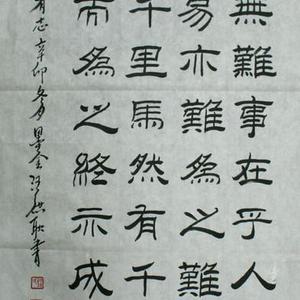 無難事在乎人
易亦難為之難
千里馬然有千
為之終示成
有志辛卯冬月墨書